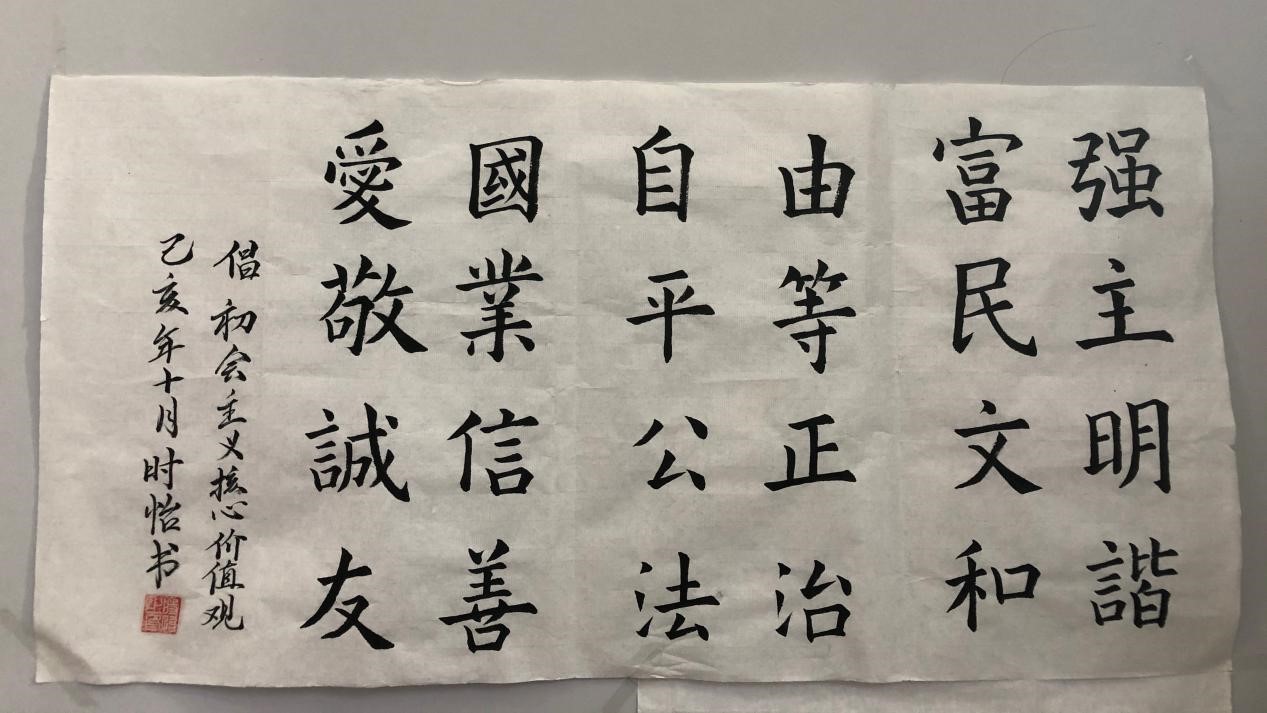 富强
民主
文明
和諧
自由
平等
公正
法治
愛國
敬業
誠信
友善
倡初会主义核心价值观
己亥年十月时怡书